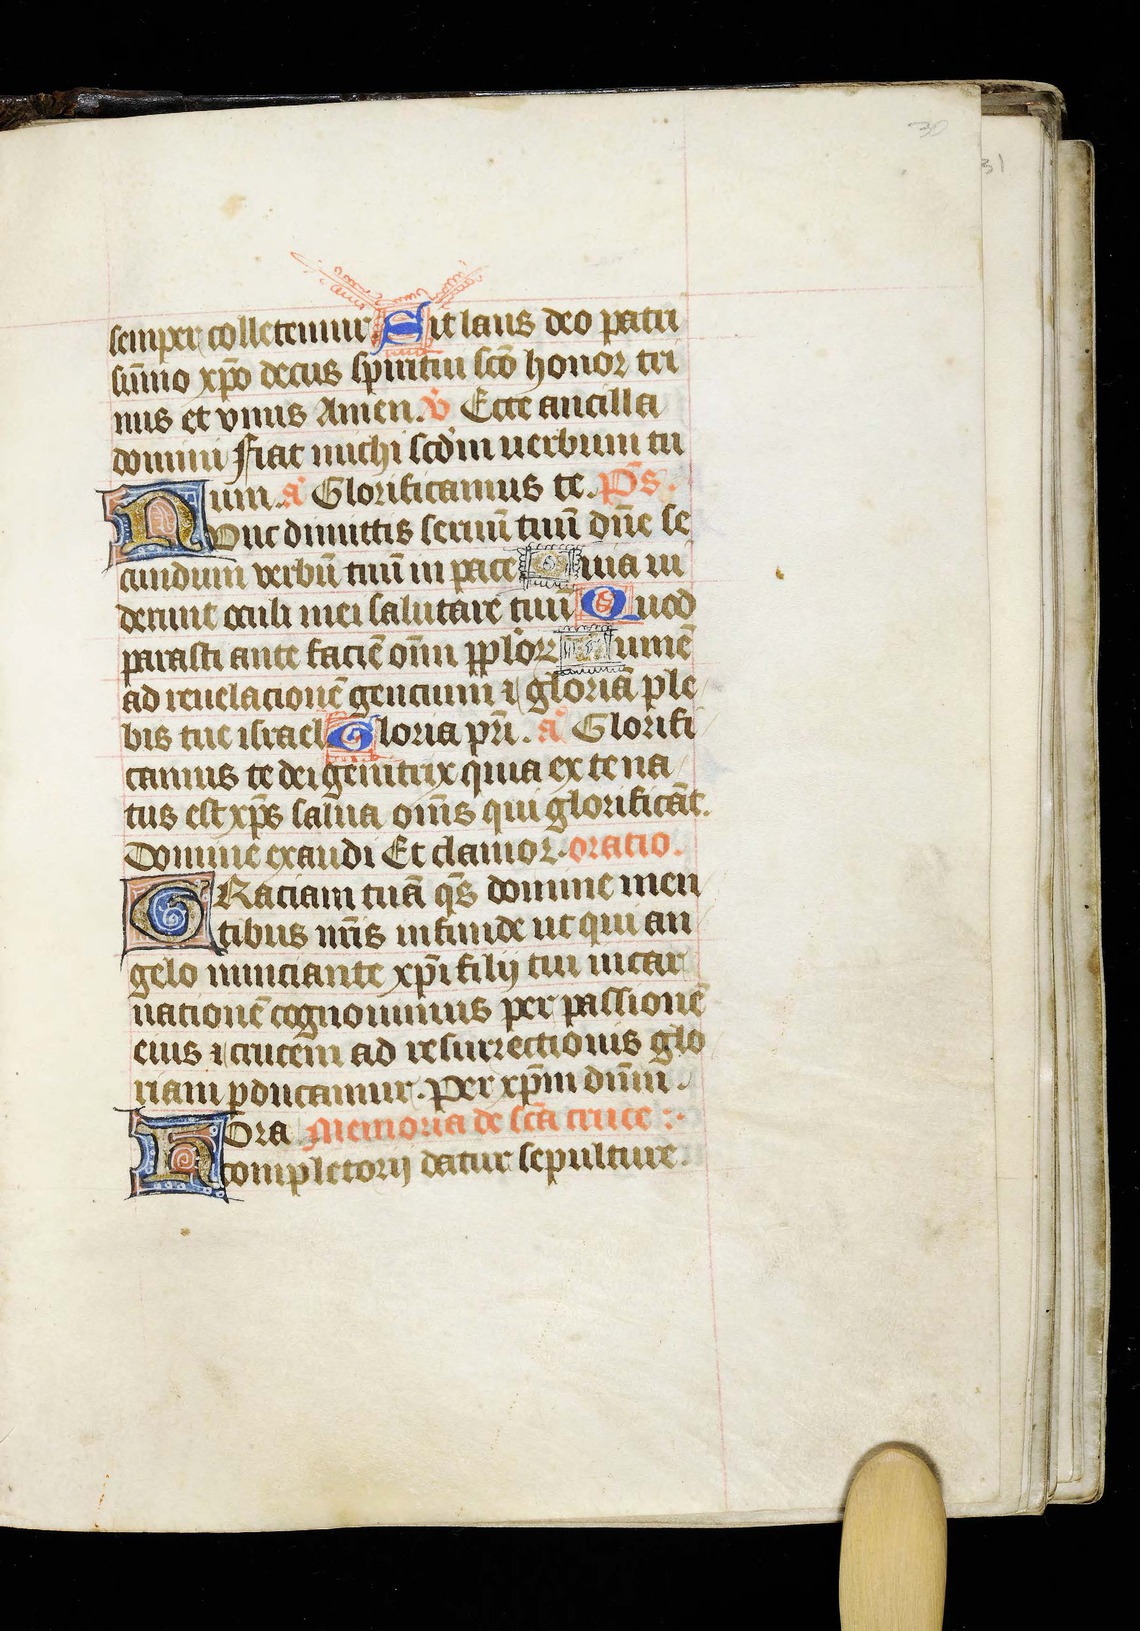 30
31
semper colletemur Sit laus deo patri
sūmo xp̄o decus spiritui scō honor tri
nus et vnus Amen. v̄ Ecce ancilla
domini Fiat michi scd̄m uerbum tu
um. a Glorificamus te. Ps̄.
Nunc dimittis seruū tuū dn̄e se
cundum verbū tuū in pace Quia ui
derunt oculi mei salutare tuū Quod
parasti ante faciē om̄i pplor̄ Lumē
ad reuelacionē gencium ⁊ gloriā ple
bis tue israel Gloria pr̄i. a Glorifi
camus te dei genitrix quia ex te na
tus est xp̄s salua om̄s qui glorificāt.
Domine exaudi Et clamor. oratio.
GRaciam tuā qs̄ domine men
tibus nr̄is infunde ut qui an
gelo nunciante xp̄i filij tui incar
nationē cognouimus per passionē
eius ⁊ crucem ad resurrectionis glo
riam ꝓducamur. Per xp̄m dn̄m.
Hora Memoria de scā cruce :·
completorij datur sepulture.